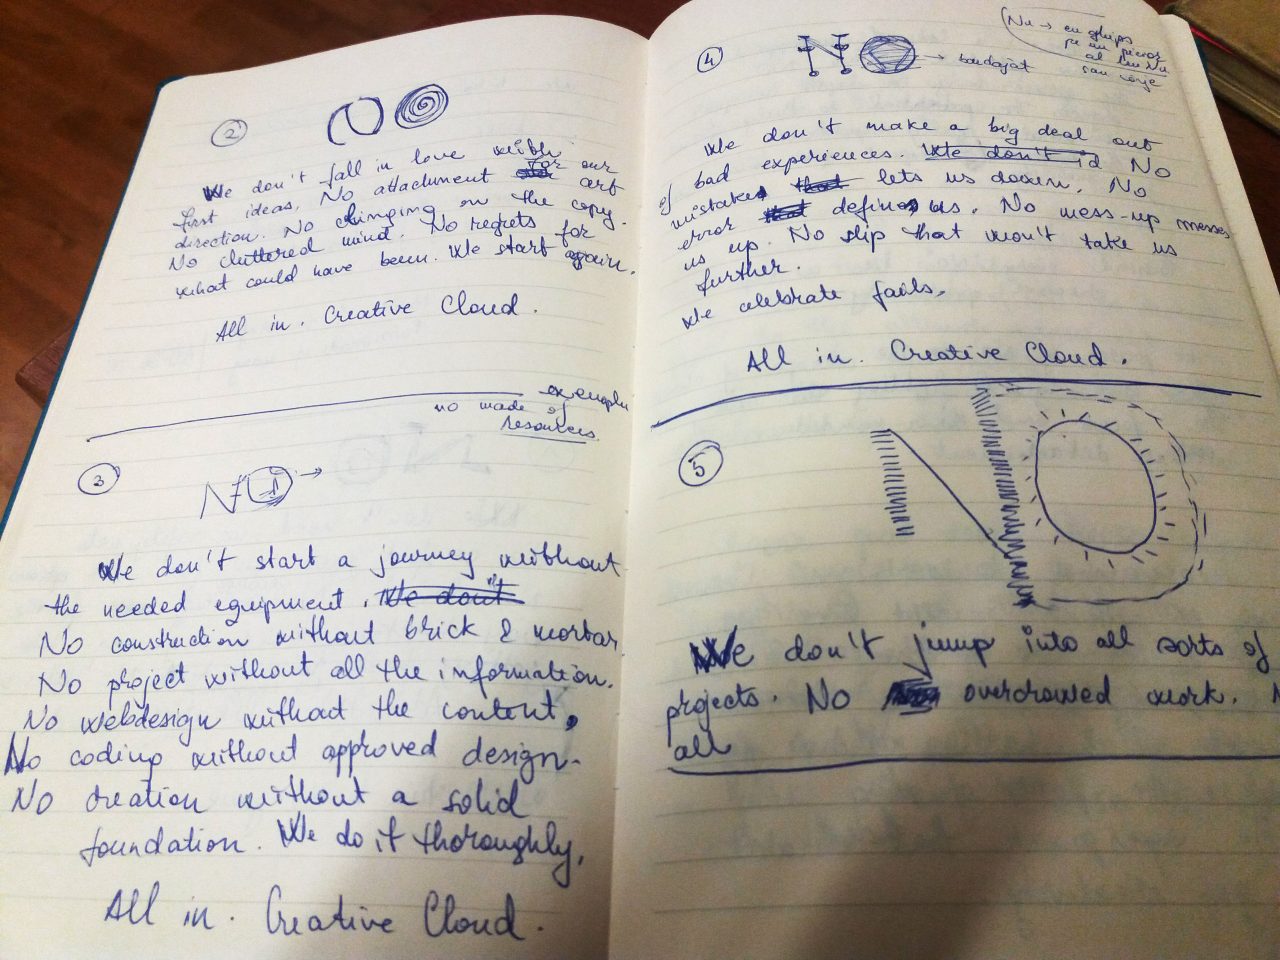 2
NO
We don't fall in love with our
first ideas. No attachment for art
direction. No clinging on the copy.
No cluttered mind. No regrets for
what could have been. We start again.
All in. Creative Cloud.
no made of
resources.
3
NO
We don't start a journey without
the needed equipment. We don't
No construction without brick & mortar.
No project without all the information.
No webdesign without the content.
No coding without approved design.
No creation without a solid
foundation. We do it thoroughly.
All in. Creative Cloud.
4
NO → bandajat
Nu → cu ghips
pe un picior
al lui Nu
sau
We don't make a big deal out
of bad experiences. We don't No
mistakes that lets us down. No
error that defines us. No mess-up messes
us up. No slip that won't take us
further.
We celebrate fails.
All in. Creative Cloud.
5
NO
We don't jump into all sorts of
projects. No overdrawed work. N
all